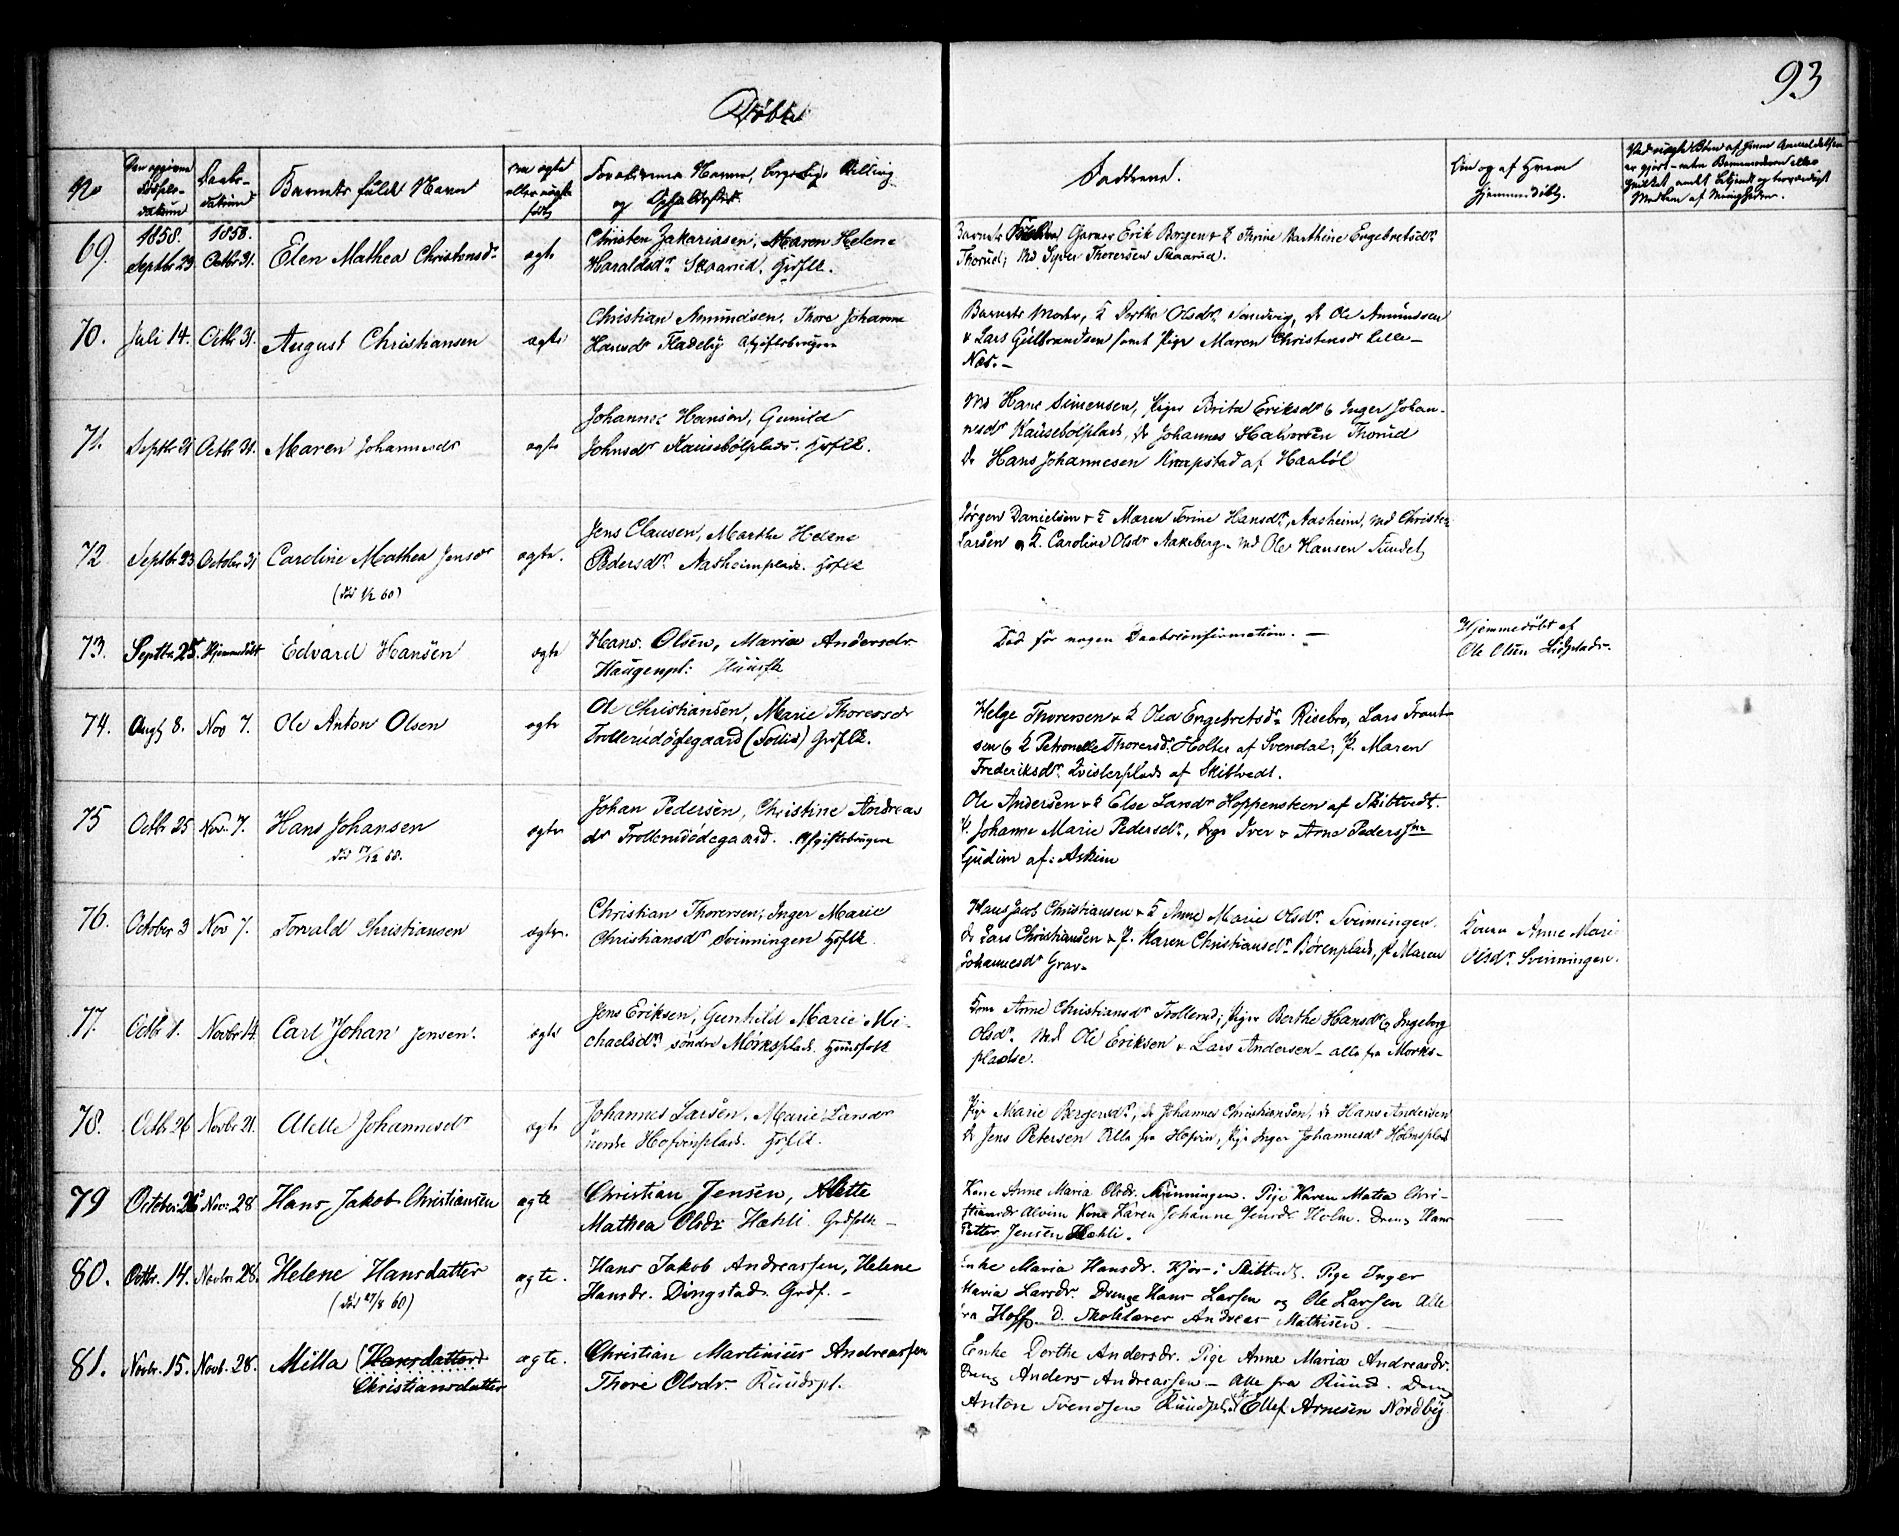 93
Døbte
No
Daabs-
datum
Barnets fulde Navn
Fadderne.
69.
1858.
Septbr 23
1858.
Octbr 31.
Elen Mathea Christensdr
ægte
Christen Zakariasen, Maren Helene
Haraldsdr Skaarud. Grdflk.
Barnets Garver Erik Borgen & Thrine Barthine Engebretsdr
Thorud; Ms Syver Thoresen Skaarud.
70.
Juli 14.
Octbr 31.
August Christiansen
ægte
Christian Amundsen, Thore Johanne
Hansdr Fladeby Afgiftsbrugere
Barnets Moder, K Dorthe Olsdr Sandvig, de Ole Amundsen
& Lars Gulbrandsen samt Pige Maren Christensdr Lille-
Næs.-
71.
Septbr 21
Octbr 31.
Maren Johannesdr
ægte
Johannes Hansen, Gunild
Johnsdr Kausebølplads. Hsflk.
Ms Hans Simensen, Piger Brita Eriksdr & Inger Johan-
nesdr Kausebølplads, de Johannes Halvorsen Thorud
De Hans Johannesen Knapstad af Haabøl
72
Septbr 23
October 31
Caroline Mathea Jensdr
(død 1/2 60)
ægte.
Jens Clausen, Marthe Helene
Pedersdr Aasheimplads. Hsflk
Jørgen Danielsen & K Maren Torine Hansdr, Aasheim, Md Christen
Larsen & K. Caroline Olsdr Aakeberg. Md Ole Hansen Sundet,
73.
Septbr 25
Hjemmedøbt
Edvard Hansen
ægte
Hans Olsen, Maria Andersdr
Haugenpl: Huusflk
Død før nogen Daabsconfirmation. -
Hjemmedøbt af
Ole Olsen Lidplads.
74.
Augt 8.
Nov 7.
Ole Anton Olsen
ægte
Ole Christiansen, Marie Thoresdr
Trollerudødegaard (Sollis) Grdflk.
Helge Thoresen & K Olea Engebretsdr Risebro, Lars Frant-
sen & K Petronelle Thoresdr Holter af Svendal; P. Maren
Frederiksdr Kvisterplads af Skibtvedt.
75
Octbr 25
Nov. 7.
Hans Johansen
død 17/12 58.
ægte
Johan Pedersen, Christine Andreas
dr Trollerudødegaard. Afgiftsbrugere
Ole Andersen & K Else Larsdr Hoppensteen af Skibtvedt.
P. Johanne Marie Pedersdr, Iver & Arne Pederssne
Gudim af Askim
76.
October 3
Nov 7.
Torvald Christiansen
ægte.
Christian Thoresen; Inger Marie
Christiansdr Svinningen Hsflk.
Hans Jacob Christiansen & K Anne Marie Olsdr Svinningen.
de Lars Christiansen & P. Karen Christiansdr Børenplads, P Maren
Johannesdr Grav.
Kone Anne Marie
Olsdr Svinningen.
77.
Octbr 1.
Novbr 14.
Carl Johan Jensen.
ægte
Jens Eriksen, Gunhild Marie Mi-
chaelsdr søndre Mørksplads. Huusfolk
Kone Anne Christiansdr Trollerud; Piger Berthe Hansdr & Ingeborg
Olsdr. Md Ole Eriksen & Lars Andersen - alle fra Mørks-
pladse.
78.
Octbr 26
Novbr 21.
Alette Johannesdr
ægte
Johannes Larsen, Marie Larsdr
Hofvinplads. Hsflk.
Pige Marie Bergersdr, de Johannes Christiansen, de Hans Andersen
de Jens Petersen Alle fra Hofvin, Pige Inger Johannesdr Holmsplads
79
October 26
Nov. 28
Hans Jakob Christiansen
ægte
Christian Jensen, Alette
Mathea Olsdr Hæhli Grdfolk -
Kone Anne Maria Olsdr. Svinningen. Pige Karen Mathea Chri-
stiansdr Alvim Kone Karen Johanne Jensdr Holm. Dreng Hans
Petter Jensen Hæhli.
80.
Octbr. 14.
Novbr 28.
Helene Hansdatter
(død 27/8 60)
ægte.
Hans Jakob Andreassen, Helene
Hansdr. Dingstad. Grdf. -
Enke Maria Hansdr. Kjos i Skibtvedt. Pige Inger
Maria Larsdr. Drenge Hans Larsen og Ole Larsen Alle
fra Hoff. D. Skolelærer Andreas Mathisen. -
81.
Novbr. 15.
Novb. 28.
Milla (Hansdatter)
Christiansdatter
ægte.
Christian Martinius Andreassen
Thore Olsdr. Ruudspl.
Enke Dorthe Andersdr. Pige Anne Maria Andreasdr.
Dreng Anders Andreassen - Alle fra Ruud. Dreng
Anton Svendsen Ruudspl. Ellef Arnesen Nordby